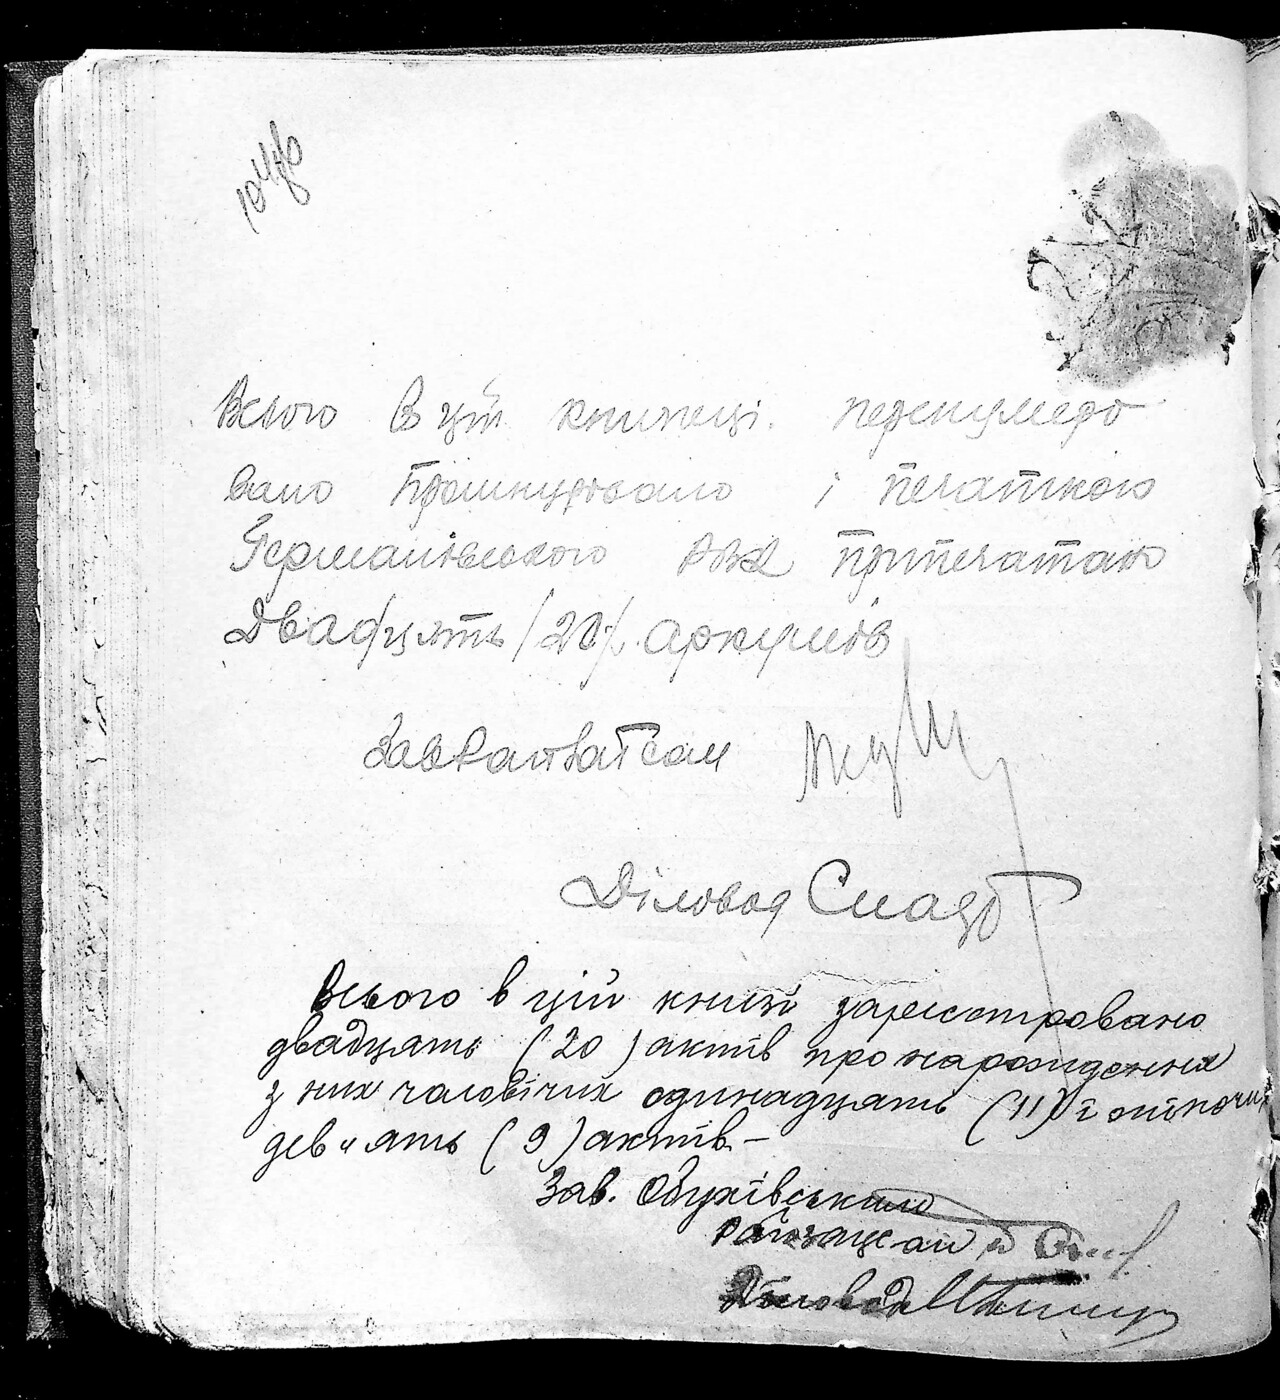 Всього в цій книжеці перенумеро
вано прошнуровано і печаткою
Германівського РВК припечатано
Двадцять /20/. аркушів
Діловод
Всього в цій книзі зареєстровано
двадцять (20) актів про народження
з них чоловічих одинадцять (11) і жіночих
дев'ять (9) актів –
Зав. Обухівським
райзагсом
Діловод